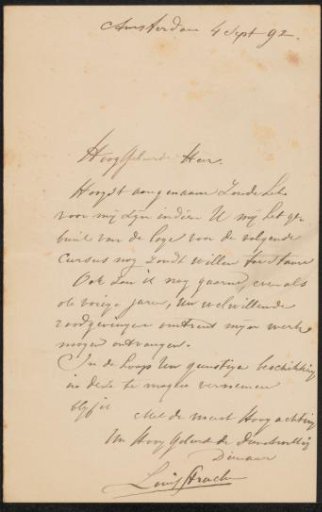 Amsterdam 4 Sept 92.
HoogGeleerde Heer.
Hoogst aangenaam zoude het
voor mij zijn indien U mij het ge-
bruik van de loge voor de volgende
cursus nog zoudt willen toestaan
Ook zou ik nog gaarne, evenals
de vorige jaren, Uw welwillende
raadgevingen omtrent mijn werk
mogen ontvangen.
In de hoop Uw gunstige beschikking
in deze te mogen vernemen
blijf ik
Met de meest Hoogachting
Uw HoogGeleerde Dienstwillige
Dienaar
Louis Strack